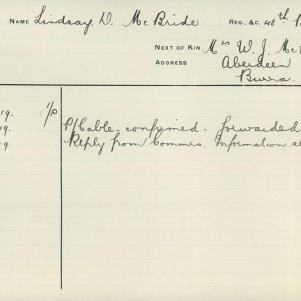 NAME Lindsay D. McBride REG. &C. 48th B
NEXT OF KIN Mrs W. J. McB
ADDRESS Aberdeen
Burra.
19. 1/P P/Cable confirmed. Forwarded
19. Reply from Commrs. Information se
9.